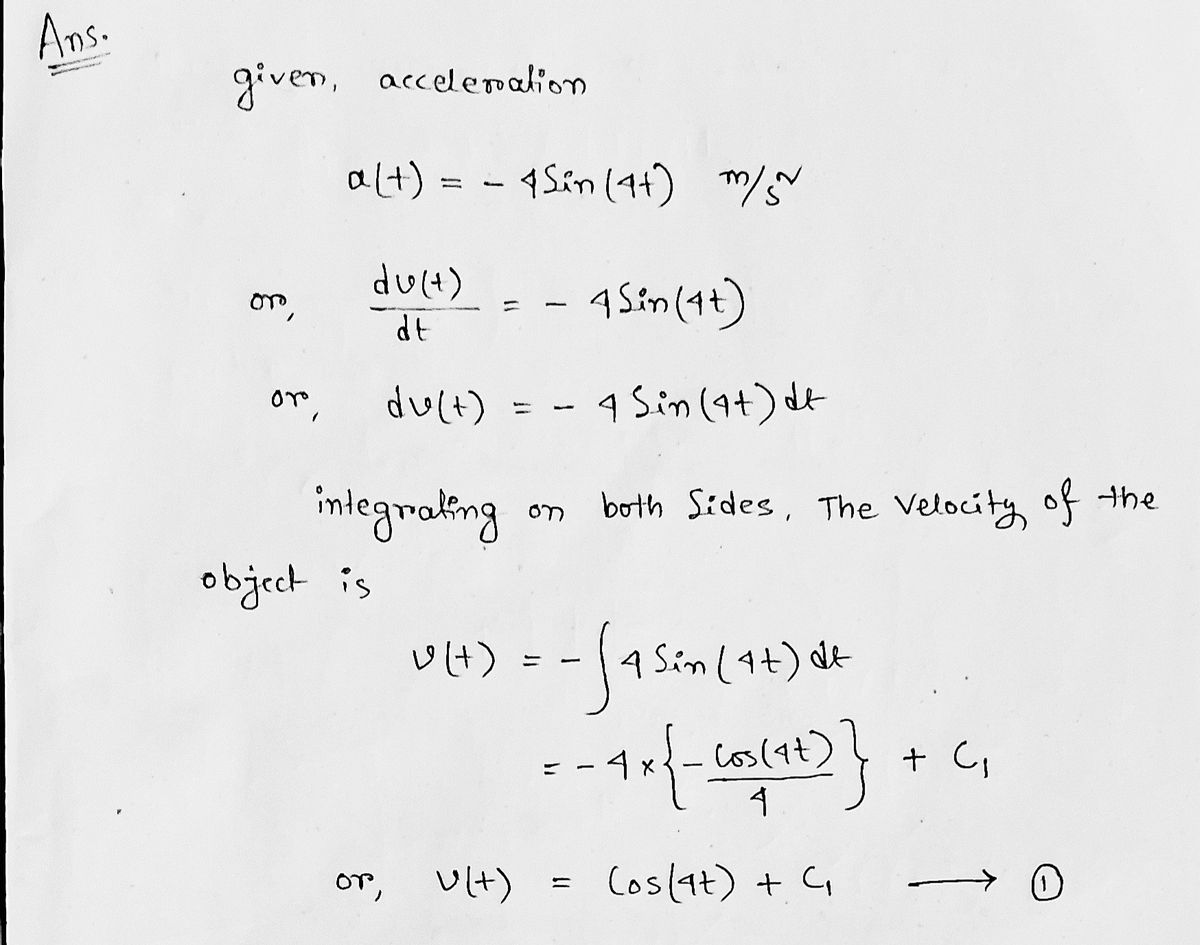 Ans.
given, acceleration
a(t) = - 4 Sin(4t) m/s²
or, dv(t)/dt = - 4 Sin(4t)
or, dv(t) = - 4 Sin(4t) dt
integrating on both Sides, The Velocity of the
object is
v(t) = - ∫ 4 Sin(4t) dt
= - 4 × {- Cos(4t)/4} + C₁
or, v(t) = Cos(4t) + C₁ ⟶ ①